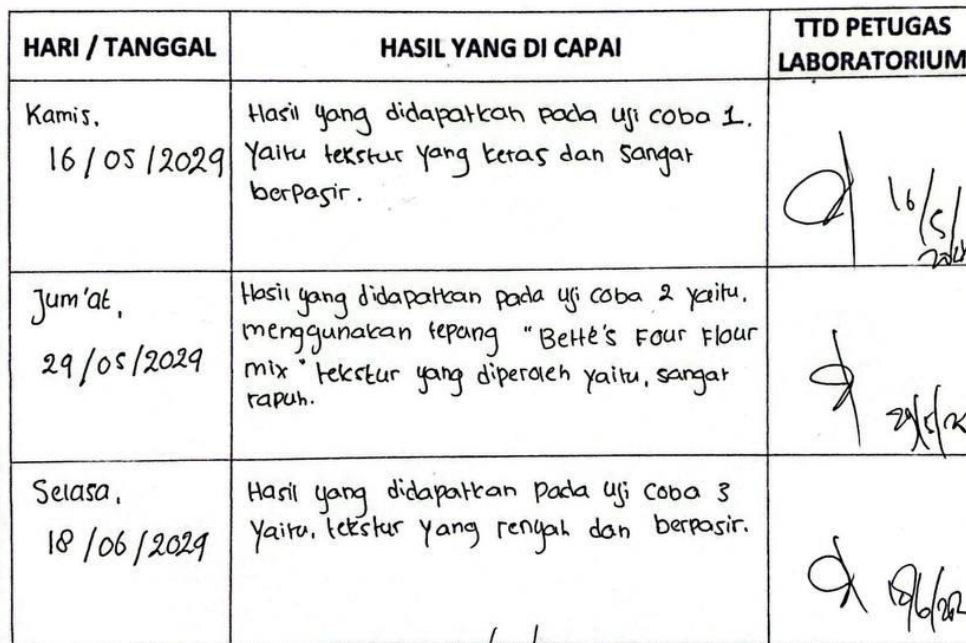 HARI / TANGGAL
HASIL YANG DI CAPAI
TTD PETUGAS
LABORATORIUM
Kamis,
16/05/2024
Hasil yang didapatkan pada uji coba 1.
Yaitu tekstur yang keras dan sangat
berpasir.
16/5/
Jum'at,
24/05/2024
Hasil yang didapatkan pada uji coba 2 yaitu,
menggunakan tepung "Bette's Four Flour
mix" tekstur yang diperoleh yaitu, sangat
rapuh.
Selasa,
18/06/2024
Hasil yang didapatkan pada uji coba 3
Yaitu, tekstur yang renyah dan berpasir.